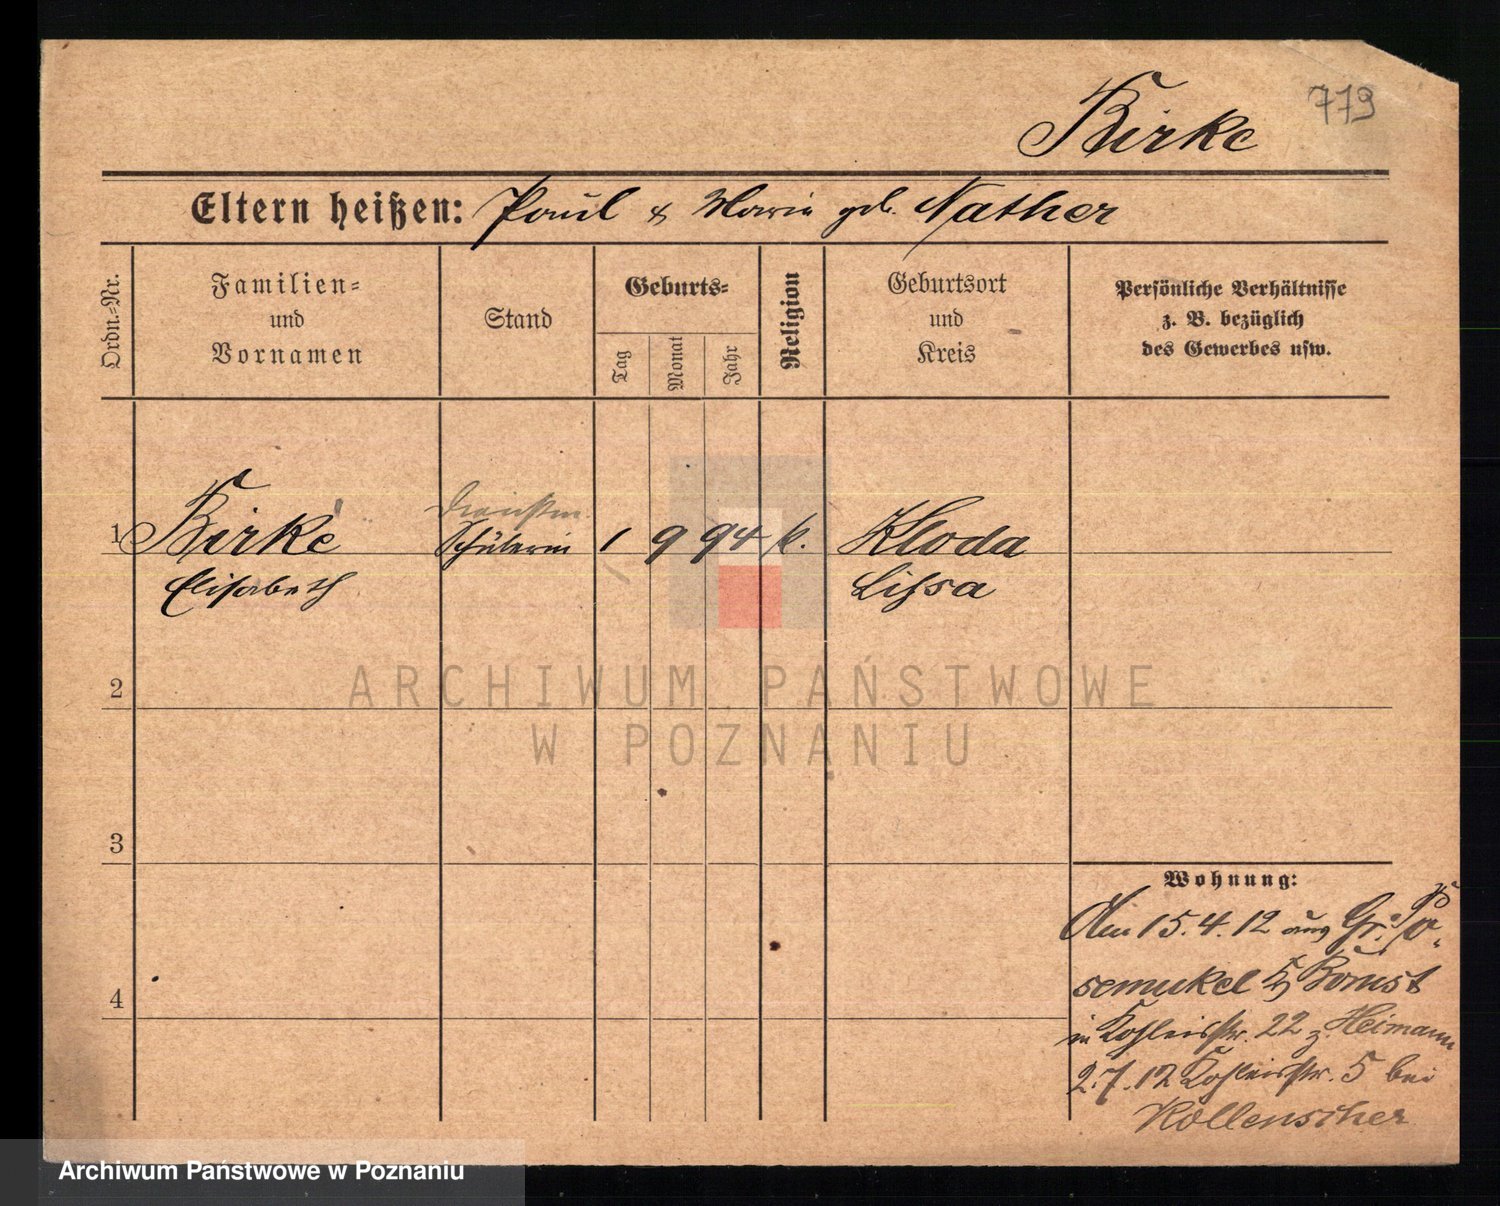 779
Birke
Eltern heißen: Paul & Marie geb. Nather
Ordn.-Nr.
Familien-
und
Vornamen
Stand
Geburts-
Tag
Monat
Jahr
Religion
Geburtsort
und
Kreis
Persönliche Verhältnisse
z. B. bezüglich
des Gewerbes usw.
1 Birke Schülerin 1 9 94 k. Kloda
Elisabeth Lissa
2
3
4
Wohnung:
Am 15.4.12 aus Gr. Po-
semukel Kr. Bomst
in 22 z. Heimann
2.7.12 5 bei
Kollenscher
ARCHIWUM PAŃSTWOWE
W POZNANIU
Archiwum Państwowe w Poznaniu